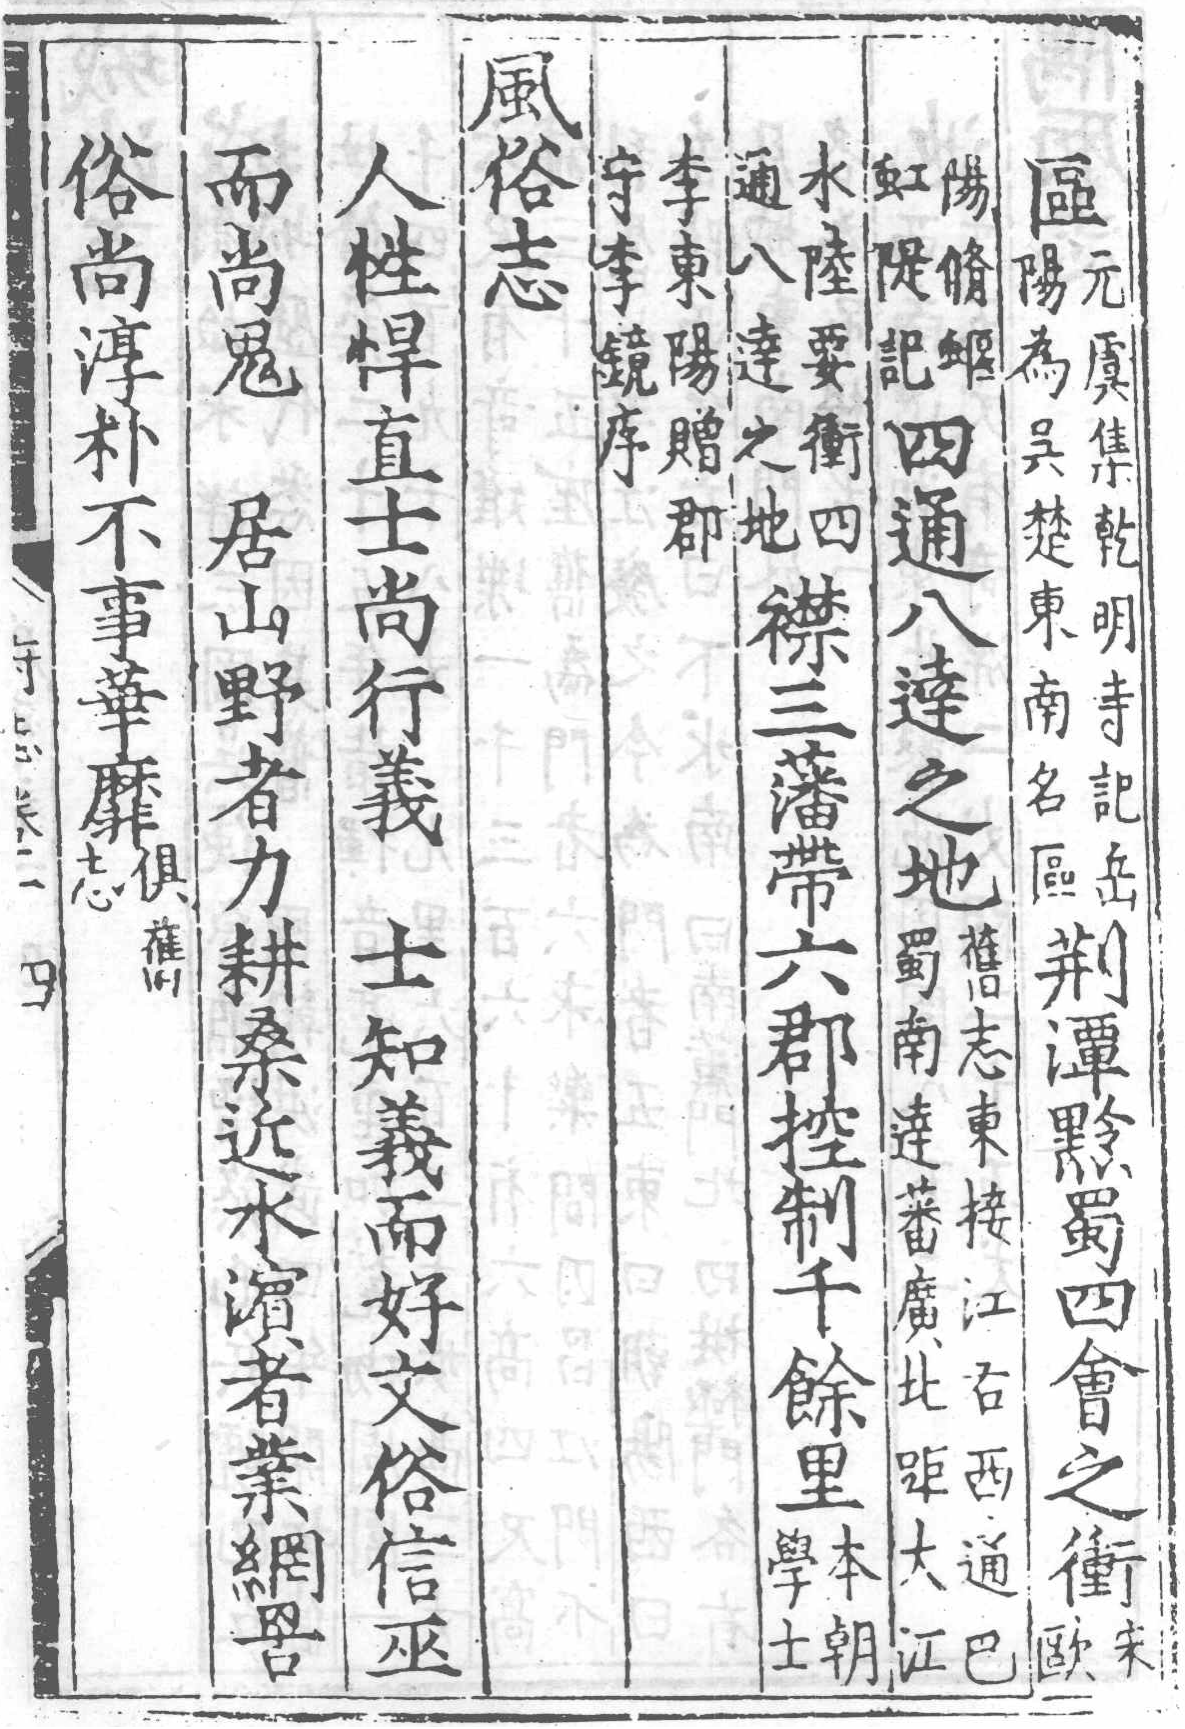 區元虞集乾明寺記岳陽為吳楚東南名區荆潭黔蜀四會之衝宋歐
陽脩蝘虹隄記四通八達之地舊志東接江右西通巴蜀南達蕃廣北距大江
水陸要衝四通八達之地襟三藩帶六郡控制千餘里本朝學士
李東陽贈郡守李鏡序
風俗志
人性悍直士尚行義 士知義而好文俗信巫
而尚鬼 居山野者力耕桑近水濵者業網罟
俗尚淳朴不事華靡俱舊志
志卷二 四